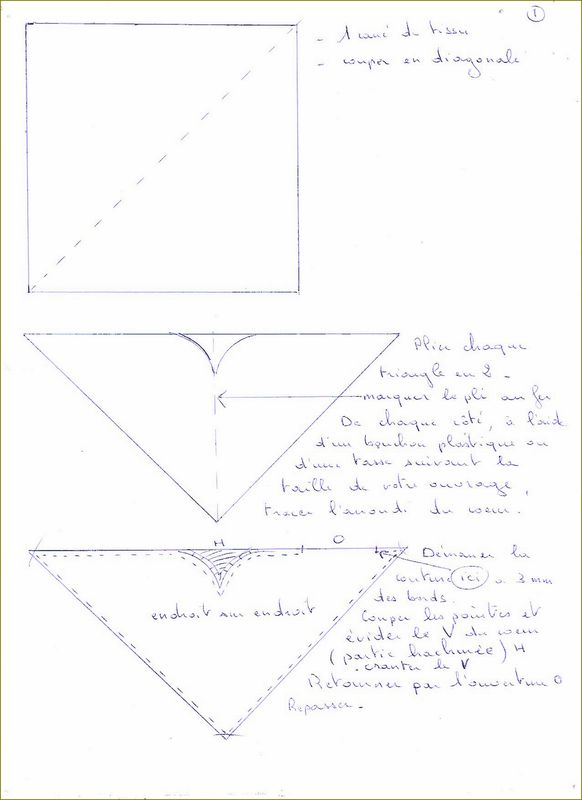 1
- 1 carré de tissu
- couper en diagonale
Plier chaque
triangle en 2 -
marquer le pli au fer
De chaque côté, à l'aide
d'un bouchon plastique ou
d'une tasse suivant la
taille de votre ouvrage,
tracer l'arrondi du coeur.
H O
Démarrer la
couture ici à 3 mm
des bords.
endroit sur endroit
Couper les pointes et
évider le V du coeur
(partie hachurée) H
. cranter le V
Retourner par l'ouverture O
Repasser -